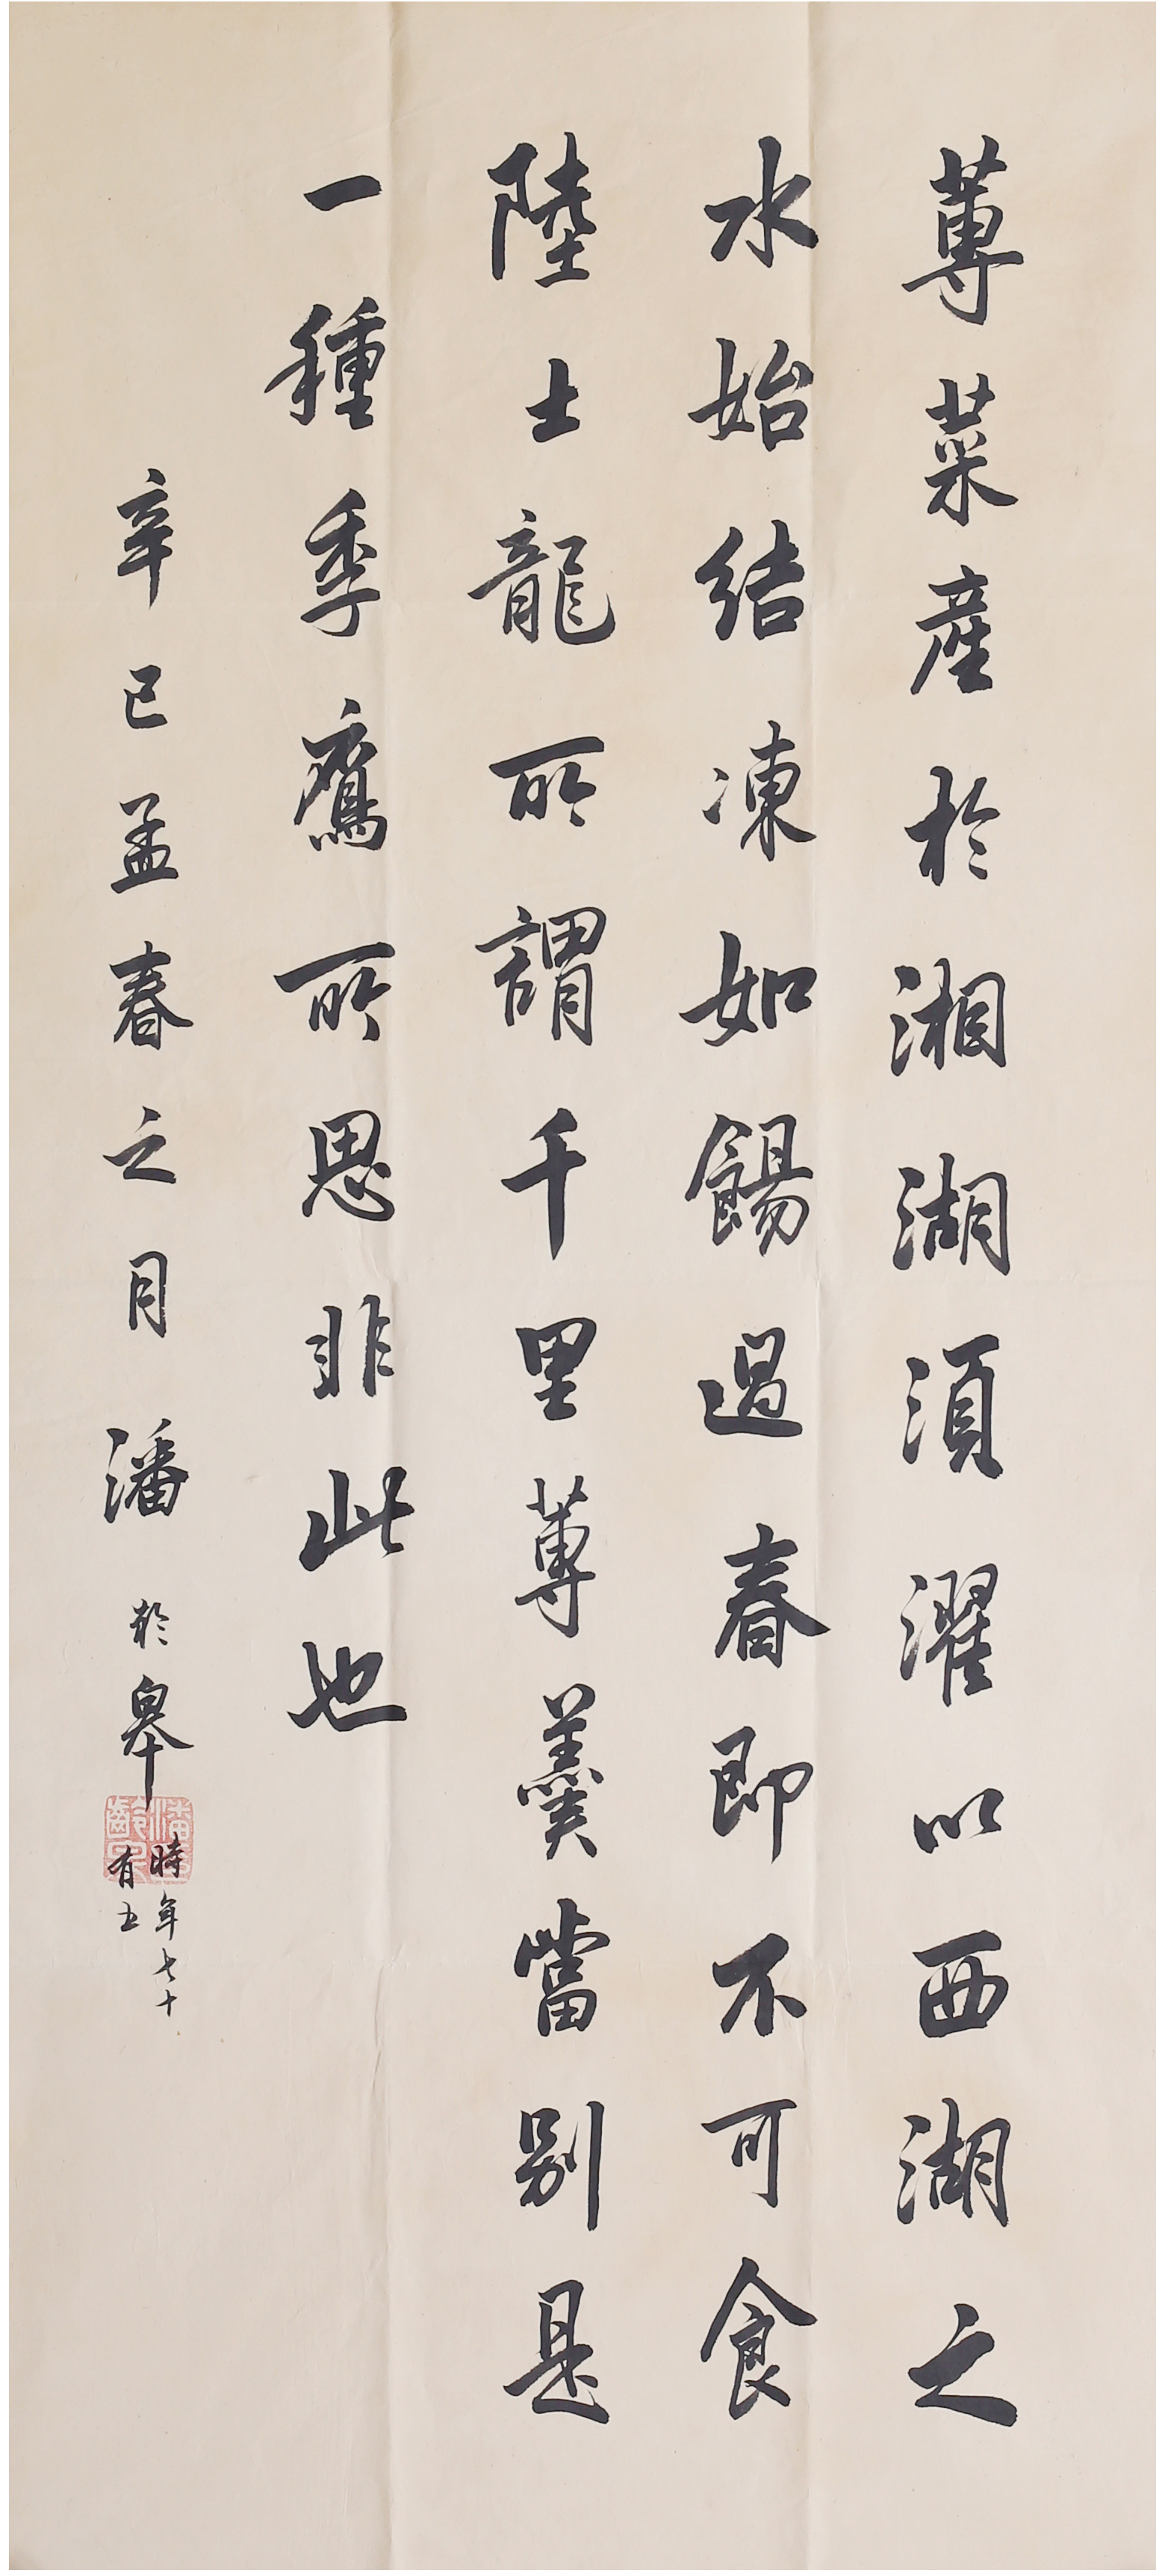 蓴菜産於湘湖須濯以西湖之
水始結凍如餳過春即不可食
陸士龍所謂千里蓴羹當别是
一種季鷹所思非此也
辛巳孟春之月潘於皋
時年七十
有五